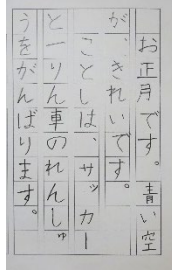 お正月です。青い空
が、きれいです。
ことしは、サッカー
と一りん車のれんしゅ
うをがんばります。